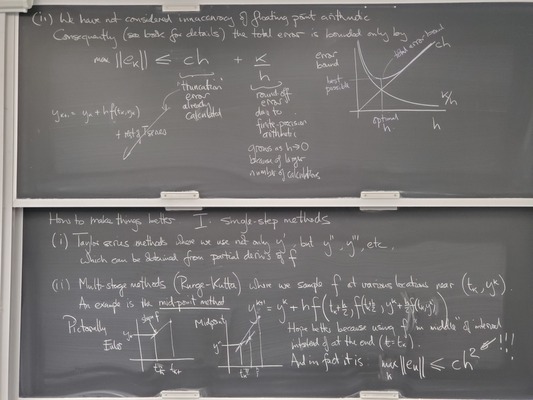 (ii) We have not considered inaccuracy of floating point arithmetic
Consequently (see book for details) the total error is bounded only by
max ||e_k|| ≤ ch + K/h
truncation
error
already
calculated
y_{k+1} = y_k + hf(t_k, y_k)
+ rest of T series
round off
error
due to
finite-precision
arithmetic
grows as h→0
because of larger
number of calculations
error
bound
best
possible
total error bound
ch
K/h
optimal
h
h
How to make things better I. single-step methods
(i) Taylor series methods where we use not only y', but y'', y''', etc.
which can be obtained from partial derivs of f
(ii) Multi-stage methods (Runge-Kutta) where we sample f at various locations near (t_k, y^k).
An example is the mid-point method y^{k+1} = y^k + hf(t_k+h/2, y^k+h/2 f(t_k, y^k))
Pictorially
Euler
slope f
Midpoint
Hope better because using f in "middle" of interval
instead of at the end (t=t_k).
And in fact it is max ||e_k|| ≤ ch² !!!
k